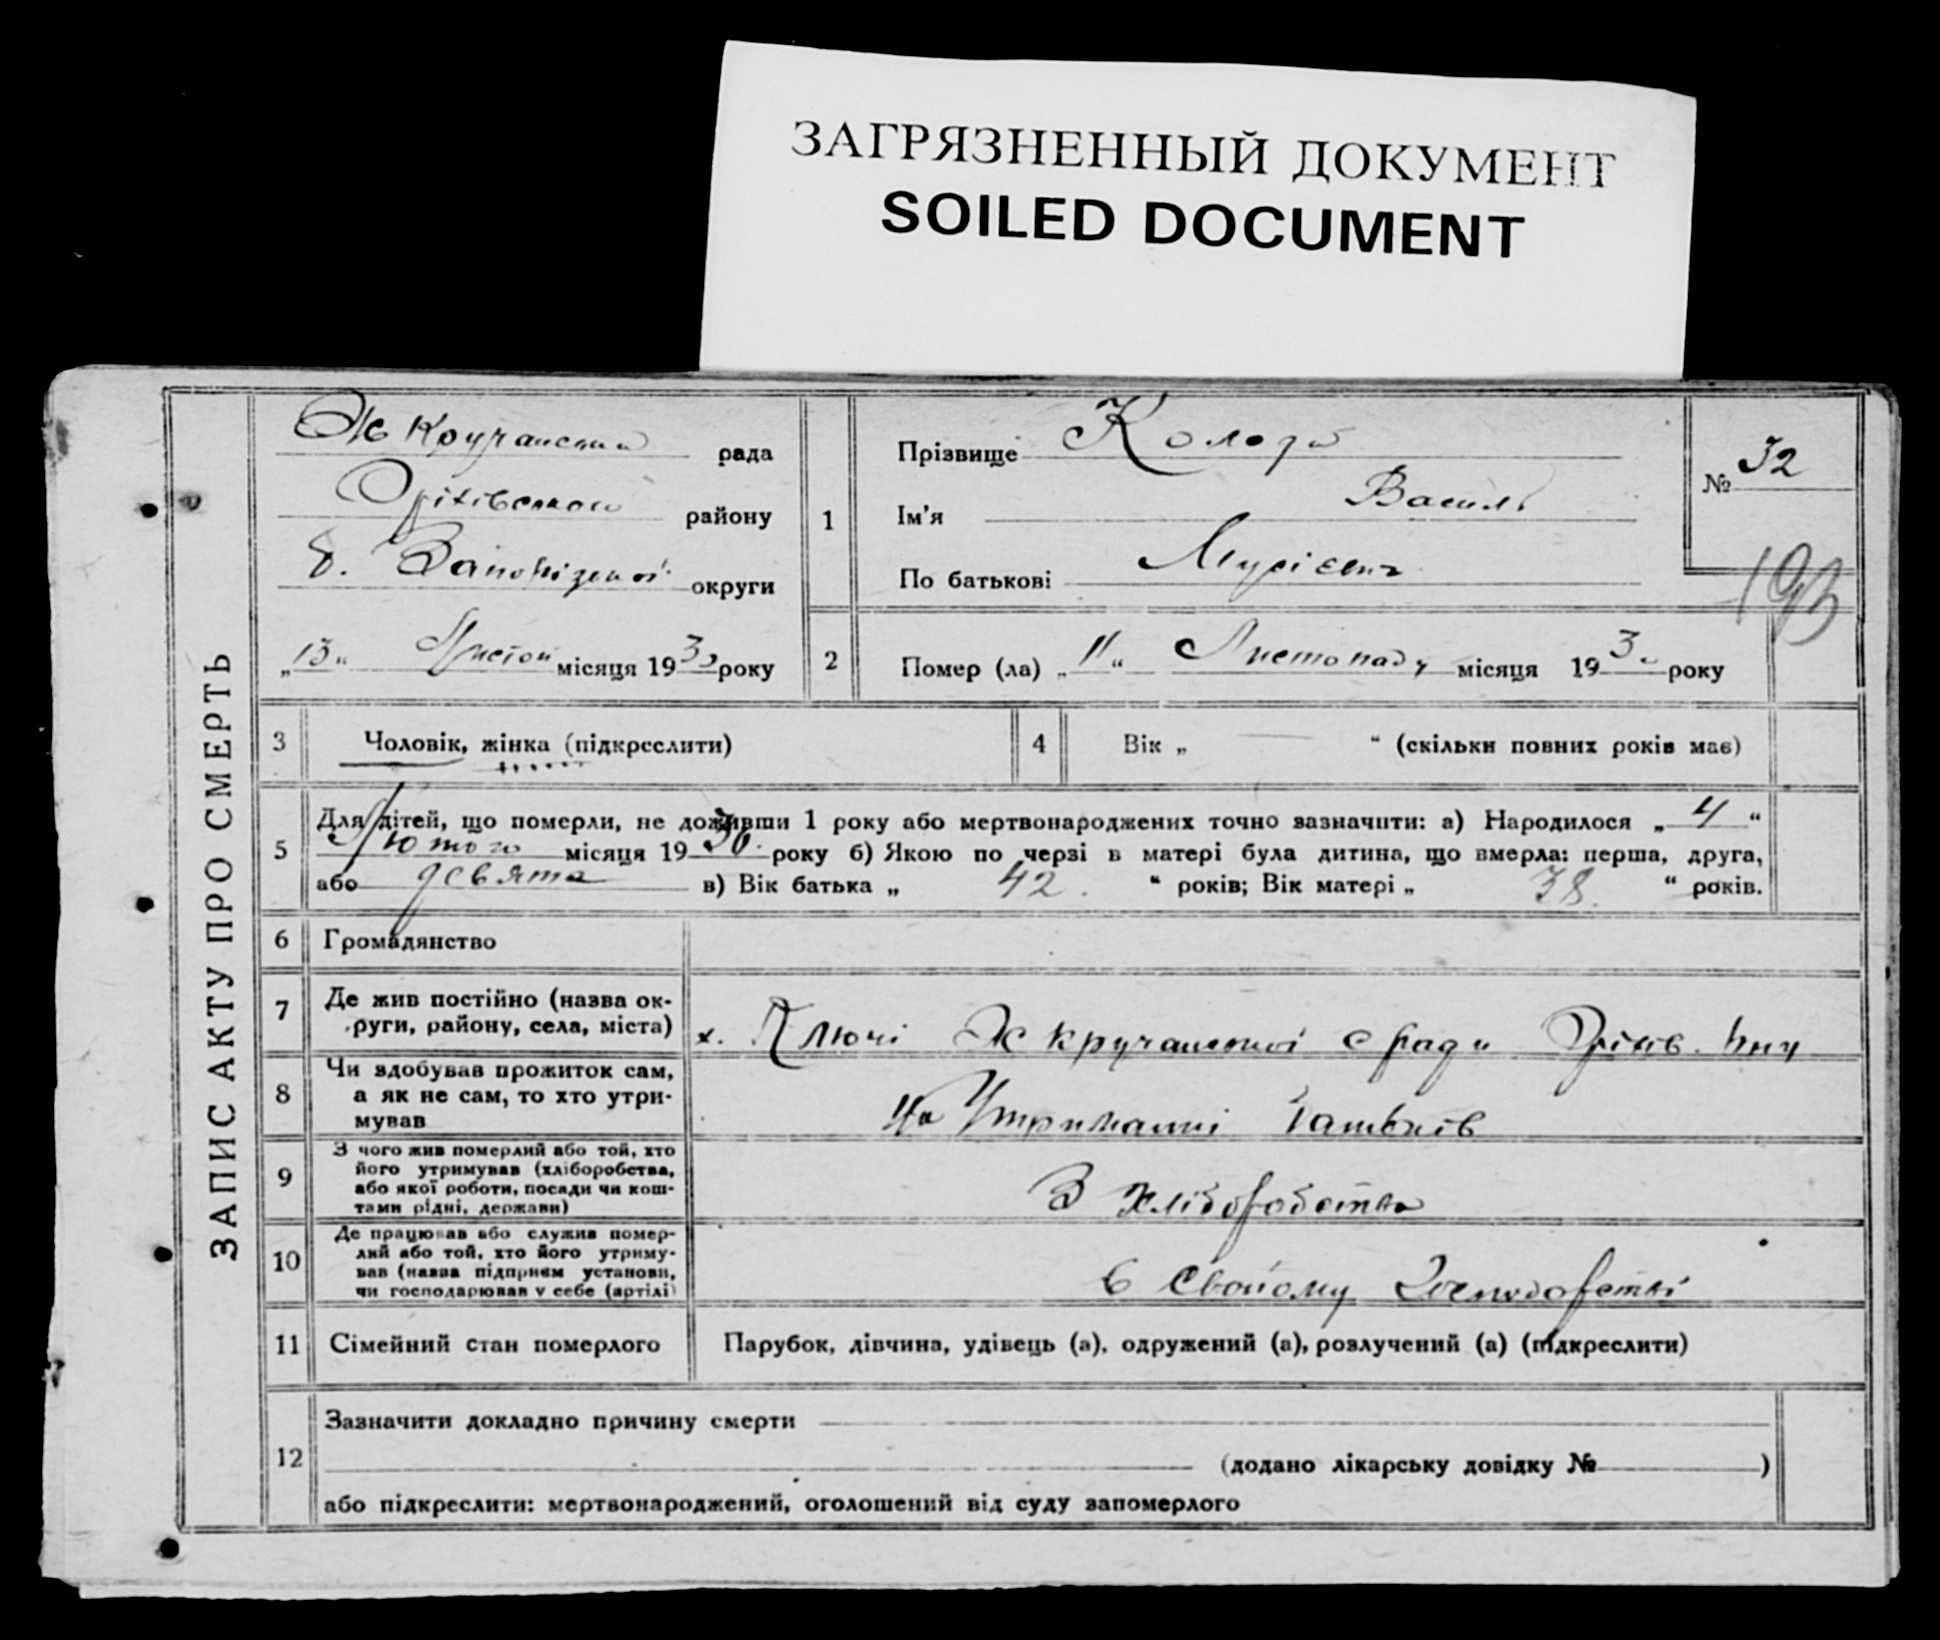 ЗАГРЯЗНЕННЫЙ ДОКУМЕНТ
SOILED DOCUMENT
ЗАПИС АКТУ ПРО СМЕРТЬ
рада
району
округи
„13“ Листоп місяця 1930 року
№ 32
193
1
Прізвище
Ім'я Василь
По батькові Мусієвич
2 Помер (ла) „11“ Листопаду місяця 1930 року
3 Чоловік, жінка (підкреслити)
4 Вік „ — “ (скільки повних років має)
5 Для дітей, що померли, не доживши 1 року або мертвонароджених точно зазначити: а) Народилося „4“
Лютого місяця 1930. року б) Якою по черзі в матері була дитина, що вмерла: перша, друга,
або девята в) Вік батька „ 42. “ років; Вік матері „ 38. “ років.
6 Громадянство
7 Де жив постійно (назва ок-
руги, району, села, міста)
х. Ключі
8 Чи здобував прожиток сам,
а як не сам, то хто утри-
мував
На Утриманні батьків
9 З чого жив померлий або той, хто
його утримував (хліборобства,
або якої роботи, посади чи кош-
тами рідні, держави)
З хліборобства
10 Де працював або служив помер-
лий або той, хто його утриму-
вав (назва підприєм установи,
чи господарював у себе (артілі)
в свойому Господарстві
11 Сімейний стан померлого
Парубок, дівчина, удівець (а), одружений (а), розлучений (а) (підкреслити)
12 Зазначити докладно причину смерти
(додано лікарську довідку № )
або підкреслити: мертвонароджений, оголошений від суду запомерлого